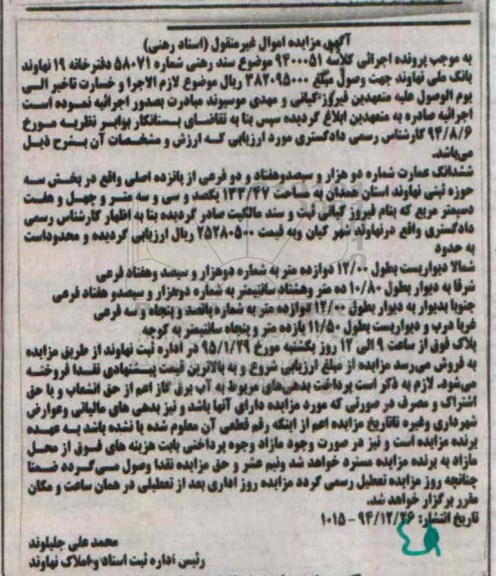 آگهی مزایده اموال غیرمنقول (اسناد رهنی)
به موجب پرونده اجرائی کلاسه ۹۴۰۰۰۵۱ موضوع سند رهنی شماره ۵۸۰۷۱ دفترخانه ۱۹ نهاوند
بانک ملی نهاوند جهت وصول مبلغ ۳۸۲۰۹۵۰۰۰ ریال موضوع لازم الاجرا و خسارت تاخیر الی
یوم الوصول علیه متعهدین فیروز کیانی و مهدی موسیوند مبادرت بصدور اجرائیه نموده است
اجرائیه صادره به متعهدین ابلاغ گردیده سپس بنا به تقاضای بستانکار برابر نظریه مورخ
۹۴/۸/۶ کارشناس رسمی دادگستری مورد ارزیابی که ارزش و مشخصات آن بشرح ذیل
می‌باشد.
ششدانگ عمارت شماره دو هزار و سیصدوهفتاد و دو فرعی از پانزده اصلی واقع در بخش سه
حوزه ثبتی نهاوند استان همدان به مساحت ۱۳۳/۴۷ یکصد و سی و سه متر و چهل و هفت
دسیمتر مربع که بنام فیروز کیانی ثبت و سند مالکیت صادر گردیده بنا به اظهار کارشناس رسمی
دادگستری واقع درنهاوند شهر کیان وبه قیمت ۲۵۲۸۰۵۰۰ ریال ارزیابی گردیده و محدوداست
به حدود
شمالا دیواریست بطول ۱۲/۰۰ دوازده متر به شماره دوهزار و سیصد وهفتاد فرعی
شرقا به دیوار بطول ۱۰/۸۰ ده متر وهشتاد سانتیمتر به شماره دوهزار و سیصدو هفتاد فرعی
جنوبا بدیوار به دیوار بطول ۱۲/۰۰ دوازده متر به شماره پانصد و پنجاه و سه فرعی
غربا درب و دیواریست بطول ۱۱/۵۰ یازده متر و پنجاه سانتیمتر به کوچه
پلاک فوق از ساعت ۹ الی ۱۲ روز یکشنبه مورخ ۹۵/۱/۲۹ در اداره ثبت نهاوند از طریق مزایده
به فروش می‌رسد مزایده از مبلغ ارزیابی شروع و به بالاترین قیمت پیشنهادی نقدا فروخته
می‌شود. لازم به ذکر است پرداخت بدهی‌های مربوط به آب برق گاز اعم از حق انشعاب و یا حق
اشتراک و مصرف در صورتی که مورد مزایده دارای آنها باشد و نیز بدهی های مالیاتی وعوارض
شهرداری وغیره تاتاریخ مزایده اعم از اینکه رقم قطعی آن معلوم شده یا نشده باشد به عهده
برنده مزایده است و نیز در صورت وجود مازاد وجوه پرداختی بابت هزینه های فوق از محل
مازاد به برنده مزایده مسترد خواهد شد ونیم عشر و حق مزایده نقدا وصول می‌گردد ضمنا
چنانچه روز مزایده تعطیل رسمی گردد مزایده روز اداری بعد از تعطیلی در همان ساعت و مکان
مقرر برگزار خواهد شد.
تاریخ انتشار: ۹۴/۱۲/۲۶ - ۱۰۱۵
محمد علی جلیلوند
رئیس اداره ثبت اسناد واملاک نهاوند